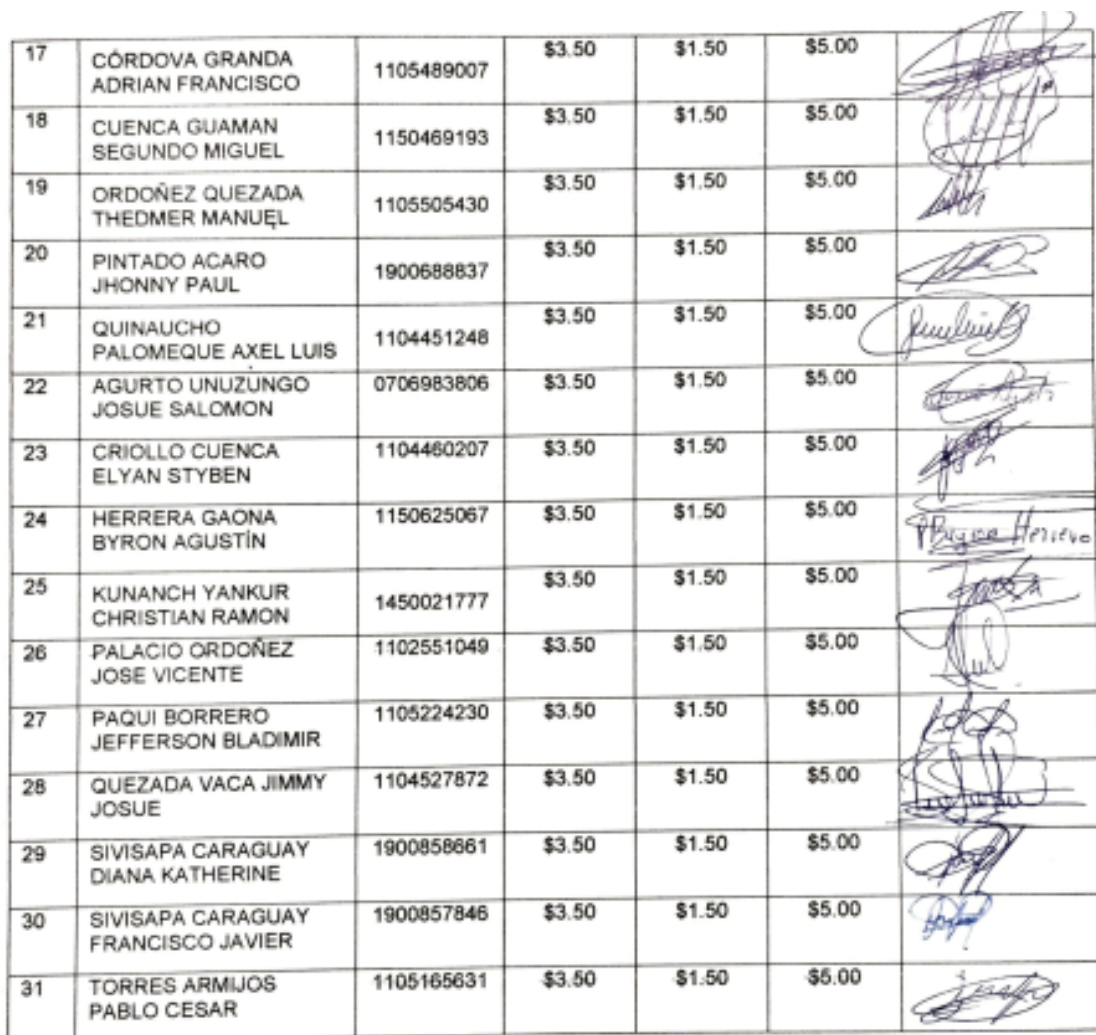 17 CÓRDOVA GRANDA ADRIAN FRANCISCO 1105489007 $3.50 $1.50 $5.00
18 CUENCA GUAMAN SEGUNDO MIGUEL 1150469193 $3.50 $1.50 $5.00
19 ORDOÑEZ QUEZADA THEDMER MANUEL 1105505430 $3.50 $1.50 $5.00
20 PINTADO ACARO JHONNY PAUL 1900688837 $3.50 $1.50 $5.00
21 QUINAUCHO PALOMEQUE AXEL LUIS 1104451248 $3.50 $1.50 $5.00
22 AGURTO UNUZUNGO JOSUE SALOMON 0706983806 $3.50 $1.50 $5.00
23 CRIOLLO CUENCA ELYAN STYBEN 1104460207 $3.50 $1.50 $5.00
24 HERRERA GAONA BYRON AGUSTÍN 1150625067 $3.50 $1.50 $5.00 Herrera
25 KUNANCH YANKUR CHRISTIAN RAMON 1450021777 $3.50 $1.50 $5.00
26 PALACIO ORDOÑEZ JOSE VICENTE 1102551049 $3.50 $1.50 $5.00
27 PAQUI BORRERO JEFFERSON BLADIMIR 1105224230 $3.50 $1.50 $5.00
28 QUEZADA VACA JIMMY JOSUE 1104527872 $3.50 $1.50 $5.00
29 SIVISAPA CARAGUAY DIANA KATHERINE 1900858661 $3.50 $1.50 $5.00
30 SIVISAPA CARAGUAY FRANCISCO JAVIER 1900857846 $3.50 $1.50 $5.00
31 TORRES ARMIJOS PABLO CESAR 1105165631 $3.50 $1.50 $5.00